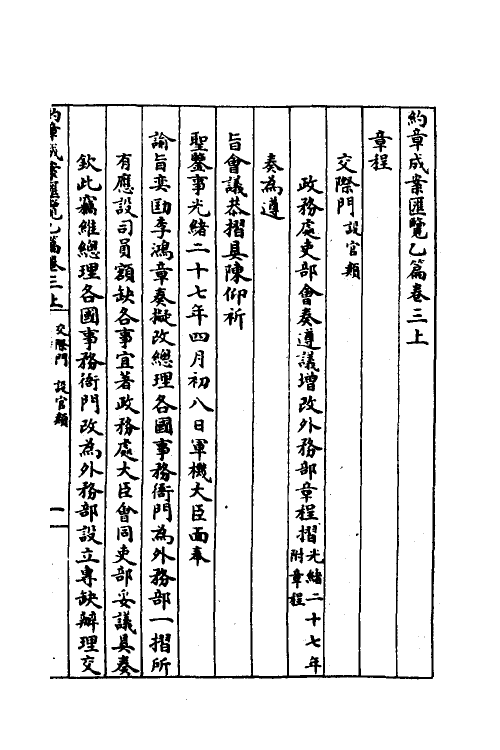 約章成案匯覽乙篇卷三上
章程
交際門設官類
政務處吏部會奏遵議增改外務部章程摺光緒二十七年附章程
奏為遵
旨會議恭摺具陳仰祈
聖鑒事光緒二十七年四月初八日軍機大臣面奉
諭旨奕劻李鴻章奏擬改總理各國事務衙門為外務部一摺所
有應設司員額缺各事宜著政務處大臣會同吏部妥議具奏
欽此竊維總理各國事務衙門改為外務部設立專缺辦理交
約章成案匯覽乙篇卷三上 交際門 設官類 一